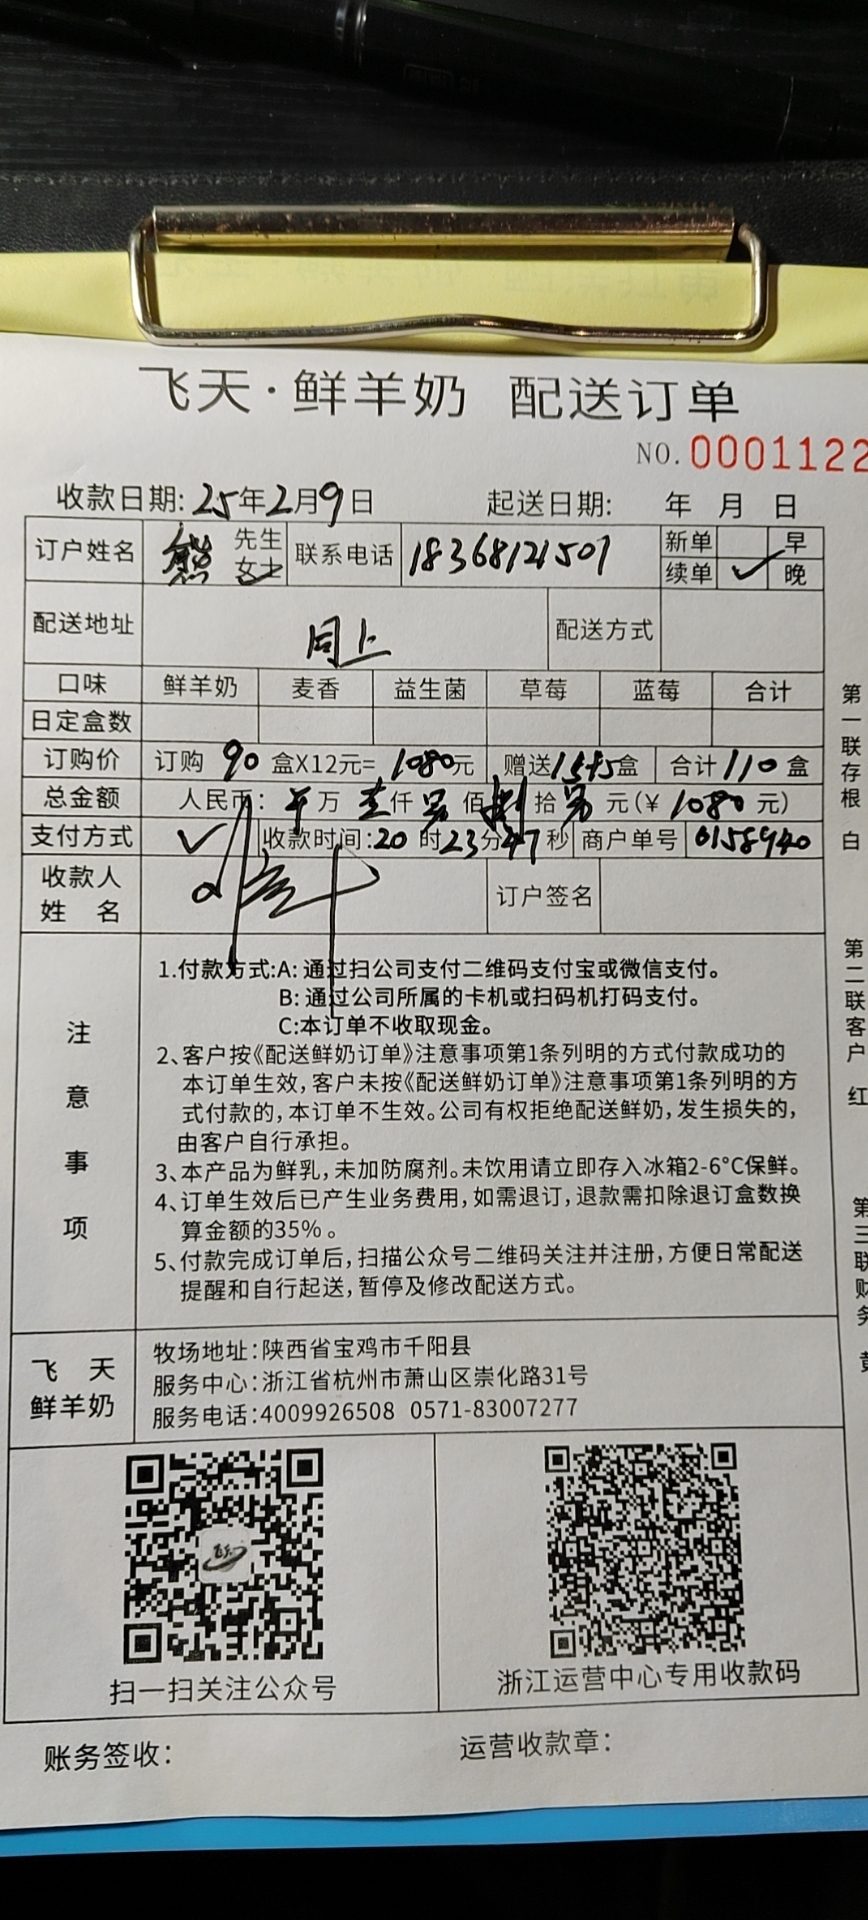 飞天·鲜羊奶 配送订单
NO.0001122
收款日期:25年2月9日 起送日期: 年 月 日
订户姓名 熊 先生 女士 联系电话 18368121507 新单 早
续单 ✓ 晚
配送地址 同上 配送方式
口味 鲜羊奶 麦香 益生菌 草莓 蓝莓 合计
日定盒数
订购价 订购 90 盒X12元= 1080元 赠送 盒 合计110盒
总金额 人民币: 万 壹仟 佰 捌拾 元(¥ 1080 元)
支付方式 ✓ 收款时间:20时23分47秒 商户单号 0158940
收款人
姓 名
订户签名
注意事项
1.付款方式:A:通过扫公司支付二维码支付宝或微信支付。
B:通过公司所属的卡机或扫码机打码支付。
C:本订单不收取现金。
2、客户按《配送鲜奶订单》注意事项第1条列明的方式付款成功的
本订单生效,客户未按《配送鲜奶订单》注意事项第1条列明的方
式付款的,本订单不生效。公司有权拒绝配送鲜奶,发生损失的,
由客户自行承担。
3、本产品为鲜乳,未加防腐剂。未饮用请立即存入冰箱2-6°C保鲜。
4、订单生效后已产生业务费用,如需退订,退款需扣除退订盒数换
算金额的35%。
5、付款完成订单后,扫描公众号二维码关注并注册,方便日常配送
提醒和自行起送,暂停及修改配送方式。
飞 天
鲜羊奶
牧场地址:陕西省宝鸡市千阳县
服务中心:浙江省杭州市萧山区崇化路31号
服务电话:4009926508 0571-83007277
扫一扫关注公众号
浙江运营中心专用收款码
账务签收:
运营收款章:
第一联存根 白
第二联客户 红
第三联财务